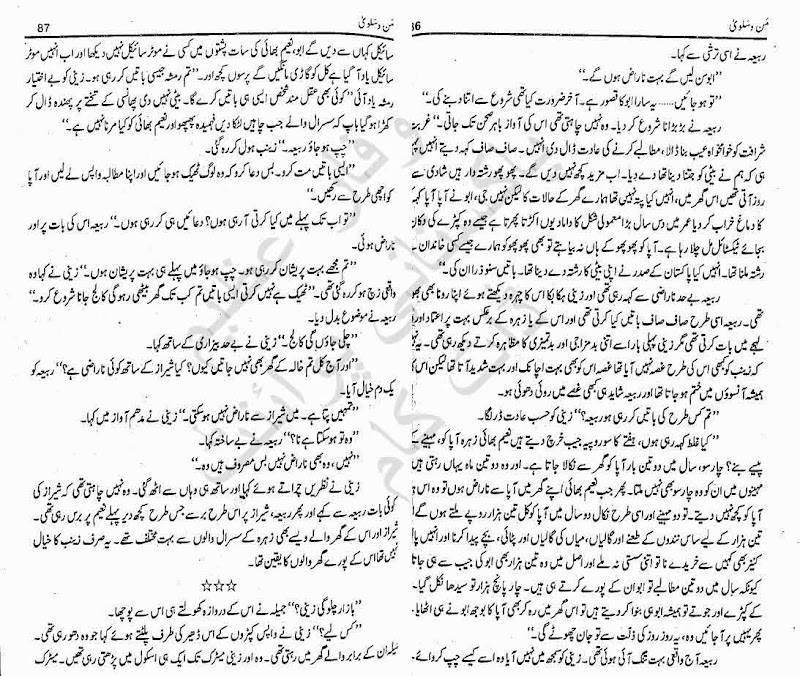 86 من وسلویٰ
ربیعہ نے اسی ترشی سے کہا۔
”ابو سن لیں گے بہت ناراض ہوں گے۔“
”تو ہو جائیں...... یہ سارا ابو کا قصور ہے۔ آخر ضرورت کیا تھی شروع سے اتنا دینے کی۔“
ربیعہ نے بڑبڑانا شروع کر دیا۔ وہ نہیں چاہتی تھی اس کی آواز باہر صحن تک جاتی۔ ”غربت
شرافت کو خوامخواہ عیب بنا ڈالا، مطالبے کرنے کی عادت ڈال دی انہیں۔ صاف صاف کہہ دیتے انہیں پہ
ہی کہ ہم نے بیٹی کو جتنا دینا تھا دے دیا۔ اب مزید کچھ نہیں دیں گے۔ پھوپھو رشتہ دار ہیں شادی سے
روز آتی تھیں اس گھر میں، انہیں کیا پتہ نہیں تھا ہمارے گھر کے حالات کا لیکن نہیں جی، ابو نے آپا آپا کہہ
کا دماغ خراب کر دیا عمر میں دس سال بڑا معمولی شکل کا داماد یوں اکڑتا پھرتا ہے جیسے وہ کپڑے کی دکان
بجائے ٹیکسٹائل مل چلا رہا ہے۔ آپا کو پھوپھو کے ہاں نہ بیاہتے تو بھی پھوپھو کو ہمارے جیسے کسی خاندان
رشتہ ملنا تھا۔ انہیں کیا پاکستان کے صدر نے اپنی بیٹی کا رشتہ دے دینا تھا۔ باتیں سنو ذرا ان کی۔“
ربیعہ بے حد ناراضی سے کہہ رہی تھی اور زینی ہکا بکا اس کا چہرہ دیکھتے ہوئے اپنا رونا بھی بھو
تھی۔ ربیعہ اسی طرح صاف صاف باتیں کیا کرتی تھی اور اس کے یا زہرہ کے برعکس بہت پر اعتماد اور
لہجے میں بات کرتی تھی مگر زینی پہلی بار اسے اتنی بدمزاجی اور بدتمیزی کا مظاہرہ کرتے دیکھ رہی تھی۔
کہ زینب کو کبھی اس طرح غصہ نہیں آیا تھا غصہ اس کو بھی بہت اچانک اور بہت شدید آتا تھا لیکن اس
ہمیشہ آنسوؤں میں ختم ہو جاتا تھا اور ربیعہ شاید ہی کبھی غصے میں روئی دھوئی ہو۔
”تم کس طرح کی باتیں کر رہی ہو ربیعہ؟“ زینی کو حسب عادت ڈر لگا۔
”کیا غلط کہہ رہی ہوں، ہفتے کا سو روپیہ جیب خرچ دیتے ہیں نعیم بھائی زہرہ آپا کو، مہینے کے
پیسے بنے؟ چار سو، سال میں دو تین بار آپا کو گھر سے نکالا جاتا ہے۔ اور وہ دو تین ماہ یہاں رہتی ہیں
مہینوں میں ان کو وہ چار سو بھی نہیں ملتا۔ پھر جب نعیم بھائی اپنے گھر میں آپا سے ناراض ہوں تو وہ اس
آپا کو کچھ نہیں دیتے۔ تو دو مہینے اور اسی طرح نکال دو سال میں آپا کو کل تین ہزار روپے ملتے ہوں گے
تین ہزار کے لیے ساس نندوں کے طعنے اور گالیاں، میاں کی گالیاں اور پٹائی، بچے پیدا کرنا اور انہیں پا
کنیز بھی کہیں سے خریدے نا تو اتنی سستی نہ ملے اور اصل میں وہ تین ہزار بھی ابو کی جیب سے ہی جاتا
کیونکہ سال میں دو تین مطالبے تو ابو ان کے پورے کرتے ہی ہیں۔ چار پانچ ہزار تو سیدھا نکل گیا۔
کے کپڑے اور جوتے تو ہمیشہ ابو ہی بنوا کر دیتے ہیں تو اس گھر میں رہ کر بھی آپا کا بوجھ ابو نے ہی اٹھایا
پھر یہیں پر آ جائیں وہ، یہ روز روز کی ذلت سے تو جان چھوٹے گی۔“
ربیعہ آج واقعی بہت تنگ آئی ہوئی تھی۔ زینی کو سمجھ میں نہیں آیا وہ اسے کیسے چپ کروائے۔
87 من وسلویٰ
سائیکل کہاں سے دیں گے ابو، نعیم بھائی کی سات پشتوں میں کسی نے موٹر سائیکل نہیں دیکھا اور اب انہیں موٹر
سائیکل یاد آ گیا ہے کل کو گاڑی مانگیں گے پرسوں کچھ اور۔“ ”تم رمشہ جیسی باتیں کر رہی ہو۔ زینی کو بے اختیار
رمشہ یاد آئی ”کوئی بھی عقل مند شخص ایسی ہی باتیں کرے گا۔ بیٹی نہیں دی پھانسی کے تختے پر پھندہ ڈال کر
کھڑا ہو گیا باپ کہ سسرال والے جب چاہیں لٹکا دیں فہمیدہ پھپھو اور نعیم بھائی کو کیا مرنا نہیں ہے۔“
”چپ ہو جاؤ ربیعہ۔“ زینب ہول کر رہ گئی۔
”ایسی باتیں مت کرو۔ بس دعا کرو کہ وہ لوگ ٹھیک ہو جائیں اور اپنا مطالبہ واپس لے لیں اور آپا
کو اچھی طرح سے رکھیں۔“
”تو اب تک پہلے میں کیا کرتی آ رہی ہوں؟ دعائیں ہی کر رہی ہوں۔“ ربیعہ اس کی بات پر اور
ناراض ہوئی۔
”تم مجھے بہت پریشان کر رہی ہو۔ چپ ہو جاؤ میں پہلے ہی بہت پریشان ہوں۔“ زینی نے کہا وہ
واقعی زچ ہو کر رہ گئی تھی۔ ”ٹھیک ہے نہیں کرتی ایسی باتیں تم کب تک گھر بیٹھی رہو گی کالج جانا شروع کرو۔“
ربیعہ نے موضوع بدل دیا۔
”چلی جاؤں گی کالج۔“ زینی نے بے حد بیزاری کے ساتھ کہا۔
”اور آج کل تم خالہ کے گھر بھی نہیں جاتیں کیوں؟ کیا شیراز کے ساتھ کوئی ناراضی ہے؟“ ربیعہ کو
یک دم خیال آیا۔
”تمہیں پتا ہے۔ میں شیراز سے ناراض نہیں ہو سکتی۔“ زینی نے مدھم آواز میں کہا۔
”وہ تو ہو سکتا ہے نا؟“ ربیعہ نے بے ساختہ کہا۔
”نہیں، وہ بھی ناراض نہیں بس مصروف ہیں وہ۔“
زینی نے نظریں چراتے ہوئے کہا اور ساتھ ہی وہاں سے اٹھ گئی۔ وہ نہیں چاہتی تھی کہ شیراز کی
کوئی بات ربیعہ سے کہے اور پھر ربیعہ، شیراز پر اس طرح برسے جس طرح کچھ دیر پہلے نعیم پر برس رہی تھی۔
شیراز اور اس کے گھر والے ویسے بھی زہرہ کے سسرال والوں سے بہت مختلف تھے۔ یہ صرف زینب کا خیال
نہیں تھا اس کے پورے گھر والوں کا یقین تھا۔
☆☆☆
”بازار چلو گی زینی؟“ جمیلہ نے اس کے دروازہ کھولتے ہی اس سے پوچھا۔
”کس لیے؟“ زینی نے واپس کپڑوں کے اس ڈھیر کی طرف پلٹتے ہوئے کہا جو وہ دھو رہی تھی۔
نیلم ان کے برابر والے گھر میں رہتی تھی۔ وہ اور زینی میٹرک تک ایک ہی اسکول میں پڑھتی رہی تھیں۔ میٹرک